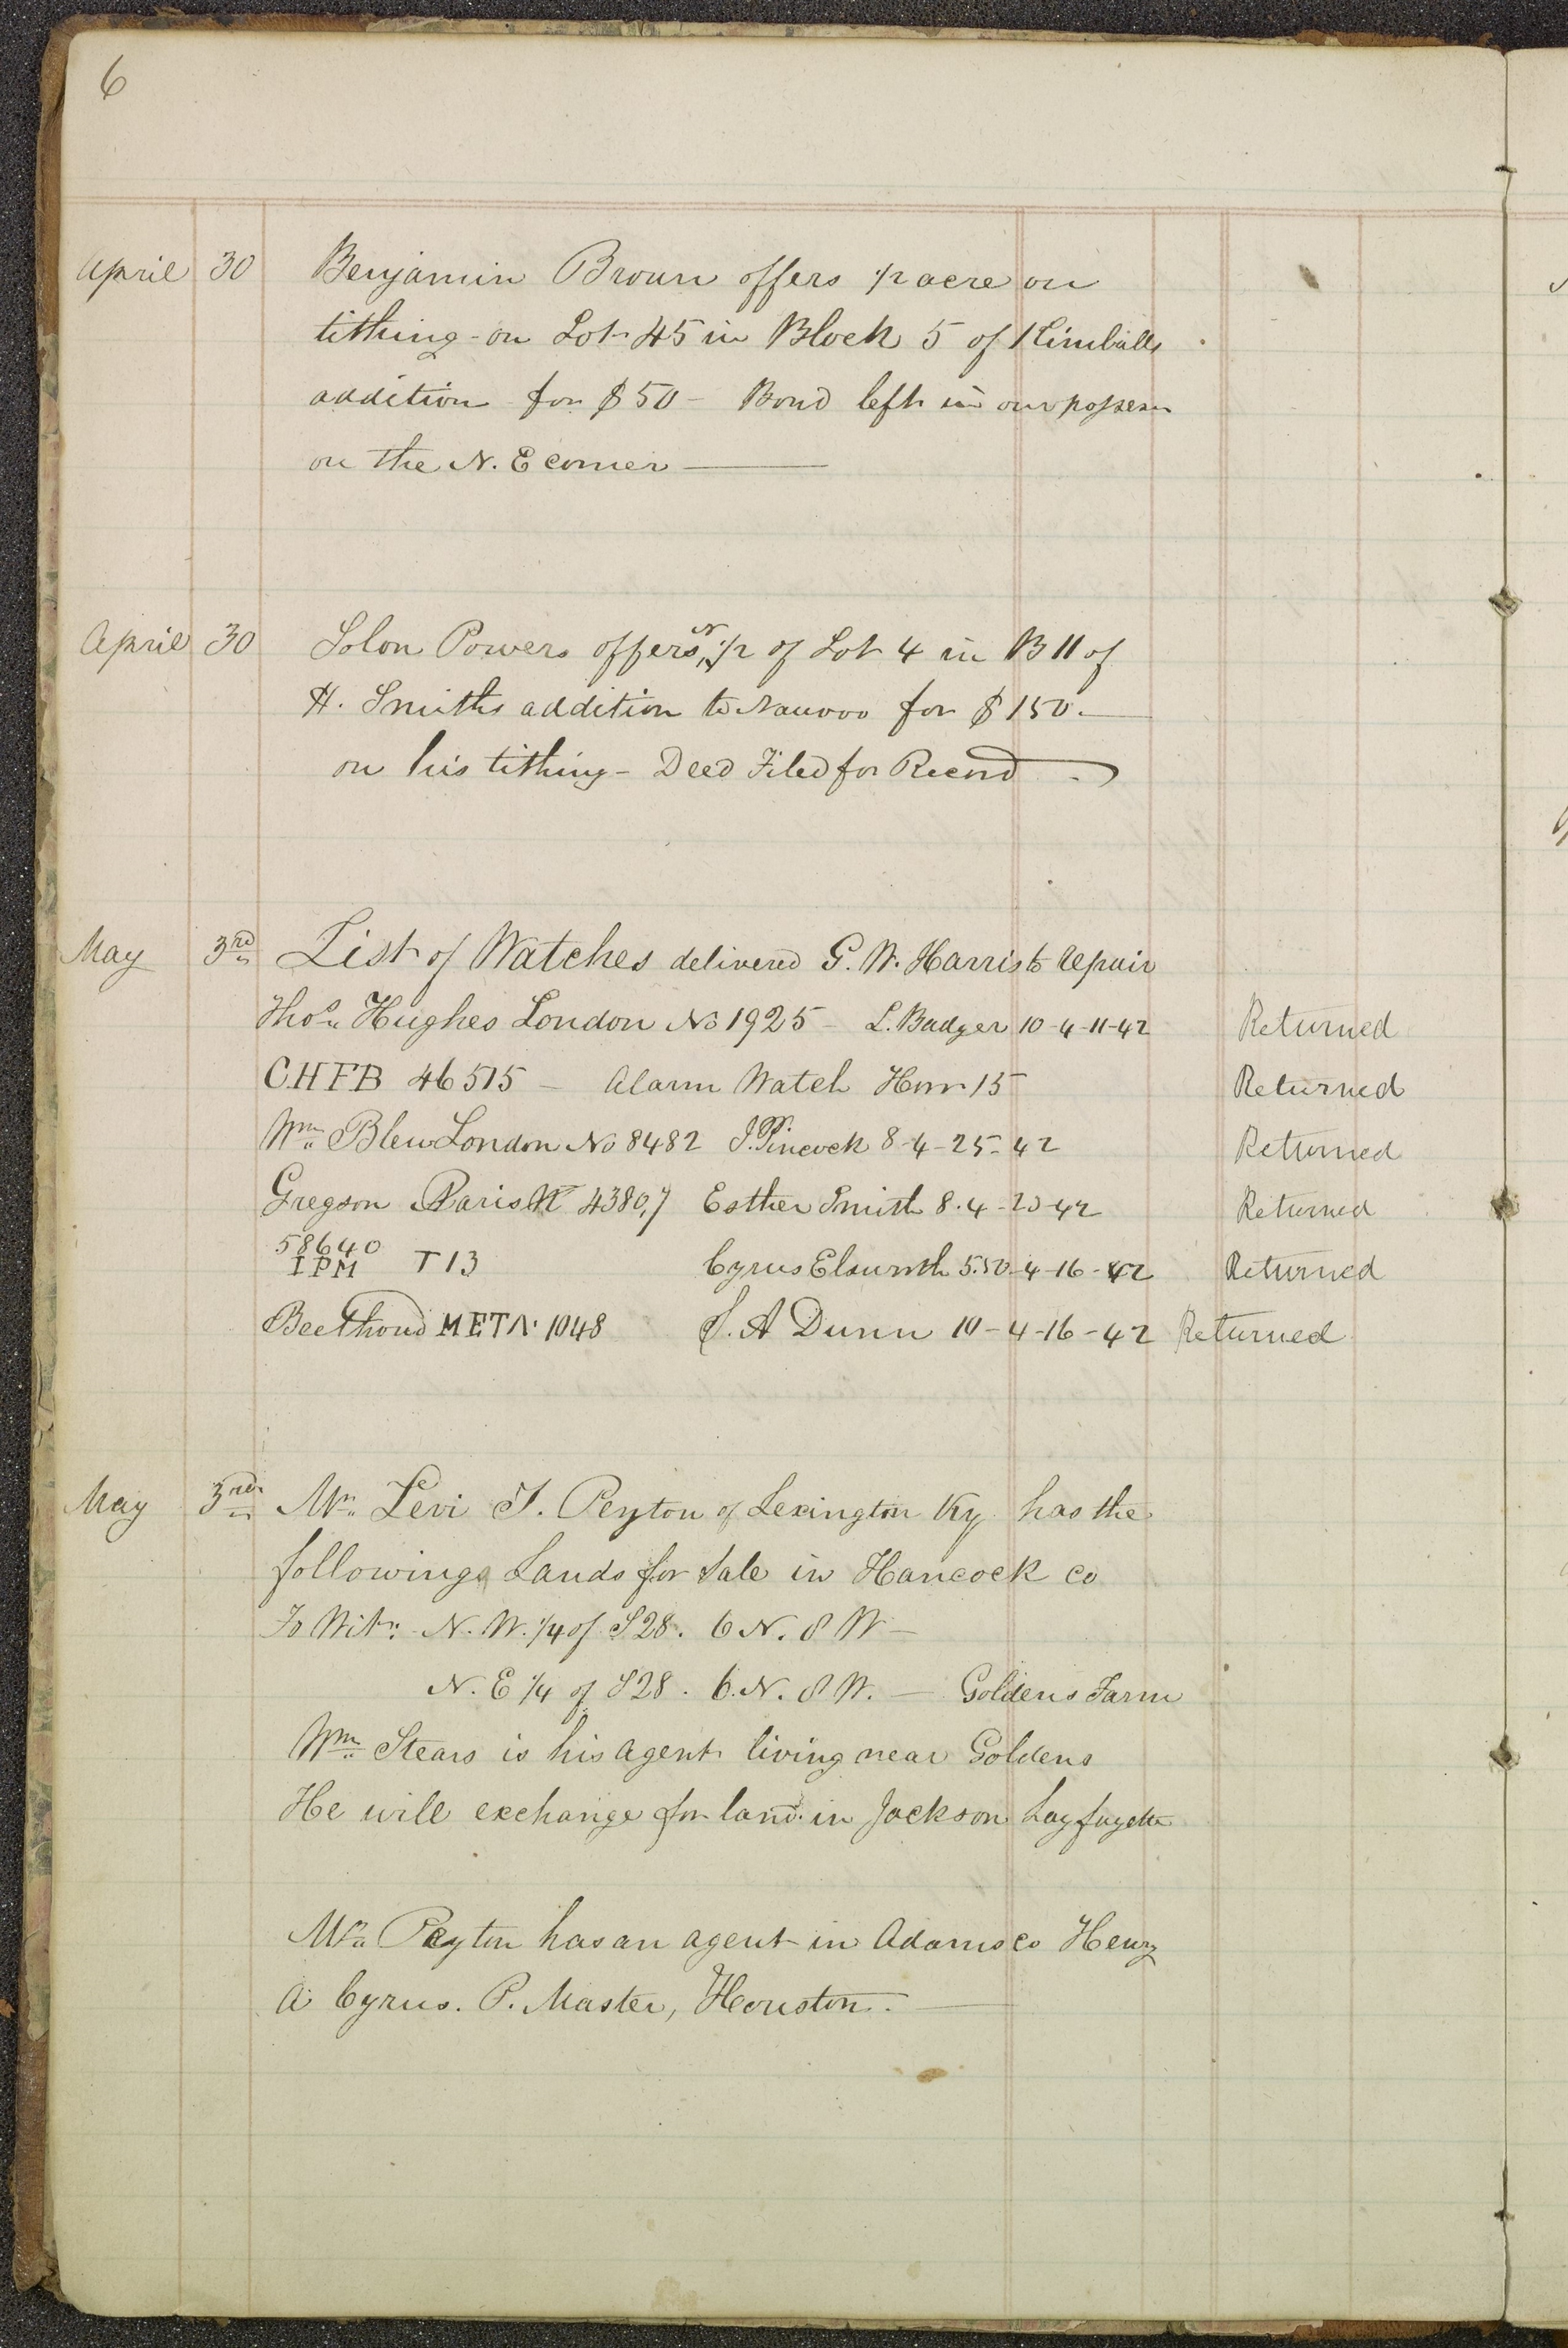 6
April 30 Benjamin Brown offers 1/2 acre on
tithing - on Lot 45 in Block 5 of Kimballs
addition for $50 - Bond left in our possesn
on the N. E corner —
April 30 Solon Powers offers N 1/2 of Lot 4 in B 11 of
H. Smiths addition to Nauvoo for $150.—
on his tithing - Deed Filed for Record
May 3rd List of Watches delivered G. W. Harris to repair
Thos Hughes London No 1925 - L. Badger 10-4-11-42 Returned
CHFB 46515 - Alarm Watch Horr 15 Returned
Wm Blew London No 8482 J. Pincock 8-4-25-42 Returned
Gregson Paris 4380,7 Esther Smith 8.4-25-42 Returned
58640
IPM T13 Cyrus Elsworth 5.50-4-16-42 Returned
Berthoud META 1048 S. A Dunn 10-4-16-42 Returned
May 3rd Mr. Levi T. Peyton of Lexington Ky has the
following Lands for Sale in Hancock Co
To Wit: N. W. 1/4 of S 28. 6 N. 8 W —
N. E 1/4 of S 28. 6. N. 8 W. — Goldens Farm
Wm Stears is his agent living near Goldens
He will exchange for land in Jackson Layfayette
Mr. Peyton has an agent in Adams Co Henry
A Cyrus. P. Master, Houston. —